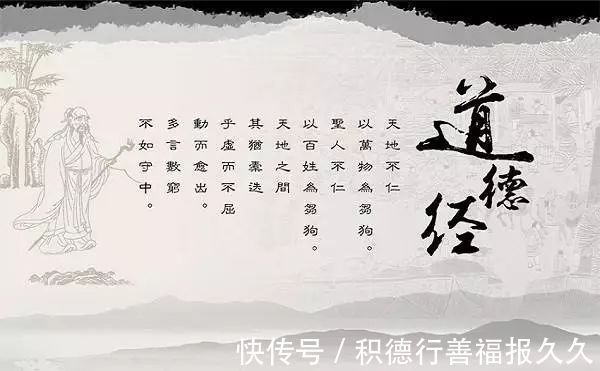 道德经
天地不仁
以萬物為芻狗。
聖人不仁
以百姓為芻狗。
天地之間
其猶橐迭
乎虛而不屈
動而愈出。
多言數窮
不如守中。
快传号 / 积德行善福报久久